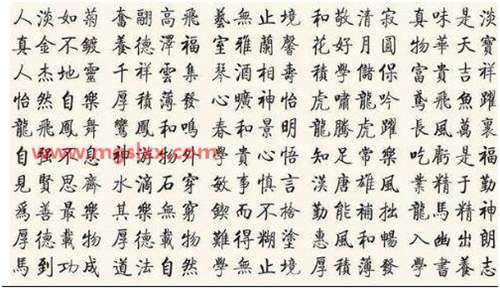 人淡如菊 奮翮高飛 藝無止境 和敬清寂 真味是淡
真金不鍍 養德澤福 室雅蘭馨 花好月圓 物華天寶
人杰地靈 千祥雲集 琴酒相壽 積學儲保 富貴吉祥
怡然自樂 厚積薄發 心曠神怡 虎嘯龍吟 鳶飛魚躍
龍飛鳳舞 鸞鳳和鳴 春和景明 龍騰虎躍 長風萬裏
自強不息 學貴心悟 知足常樂 吃虧是福
見賢思齋 水滴石穿 敏事慎言 漢唐雄風 業精于勤
爲善最樂 其樂無窮 鍥而不捨 勤能補拙 龍馬精神
厚德載物 難得糊塗 惠風和暢 入幽出朗
馬到功成 道法自然 學無止境 厚積薄發 學書養志